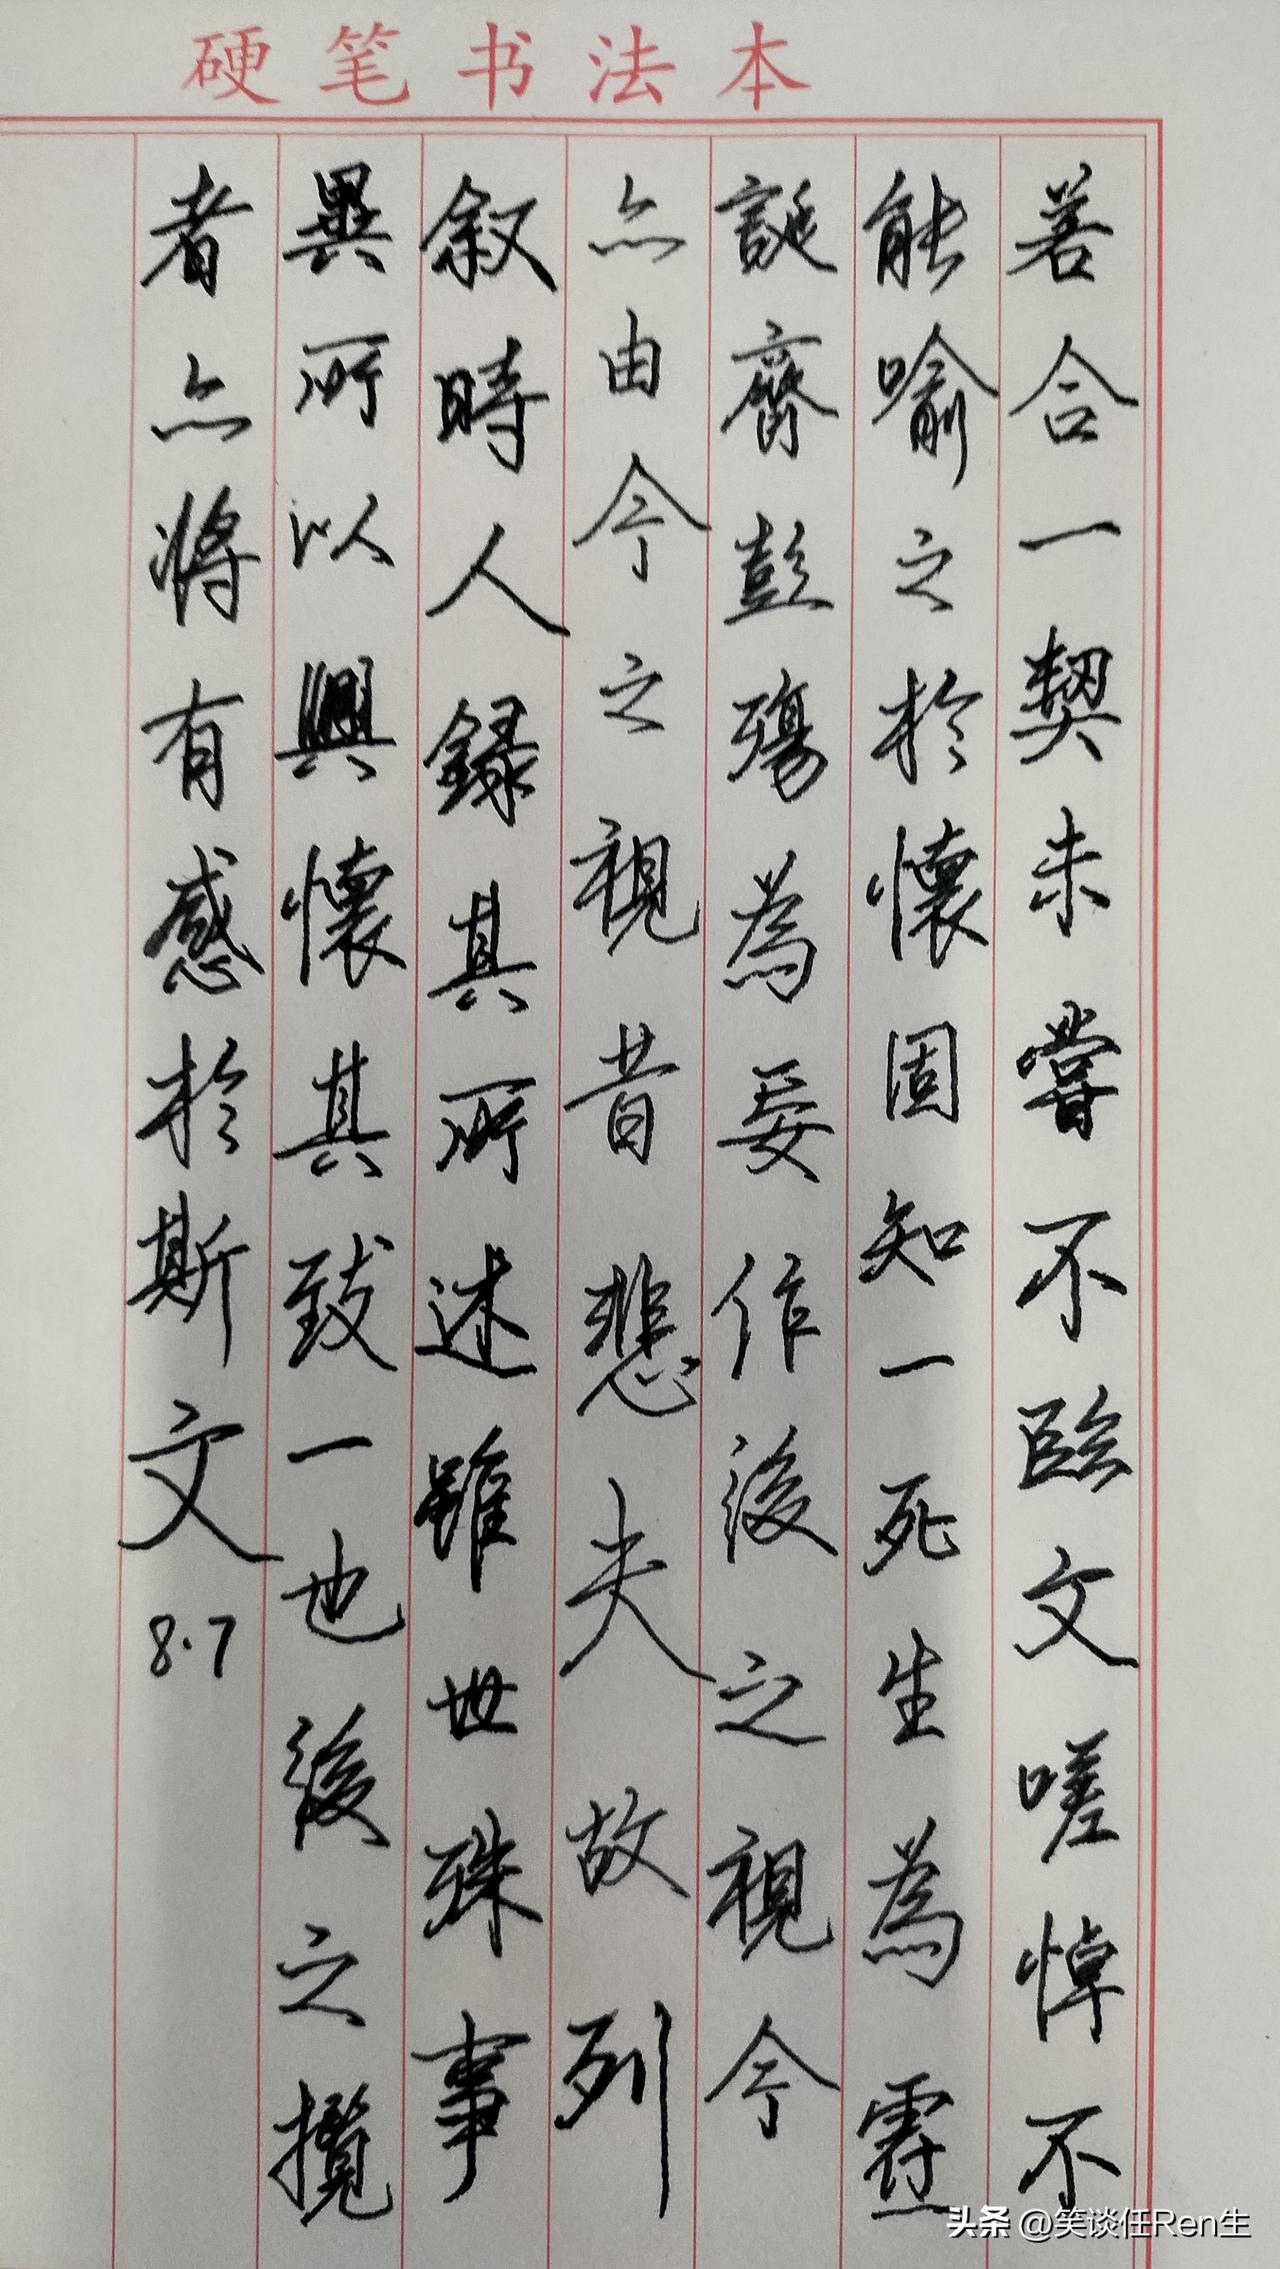 硬笔书法本
若合一契未嘗不臨文嗟悼不
能喻之於懷固知一死生為虛
誕齊彭殤為妄作後之視今
亦由今之視昔悲夫故列
叙時人錄其所述雖世殊事
異所以興懷其致一也後之攬
者亦將有感於斯文
8.7
头条 @笑谈任Ren生